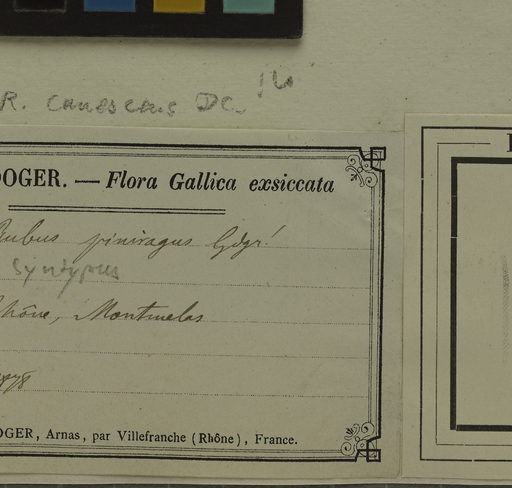 R. canescens DC.
OGER. — Flora Gallica exsiccata
Rubus piniragus Gdgr!
Syntypus
Rhône, Montmelas
OGER, Arnas, par Villefranche (Rhône), France.